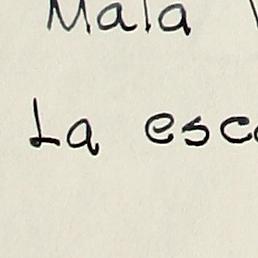 Mala
La esc